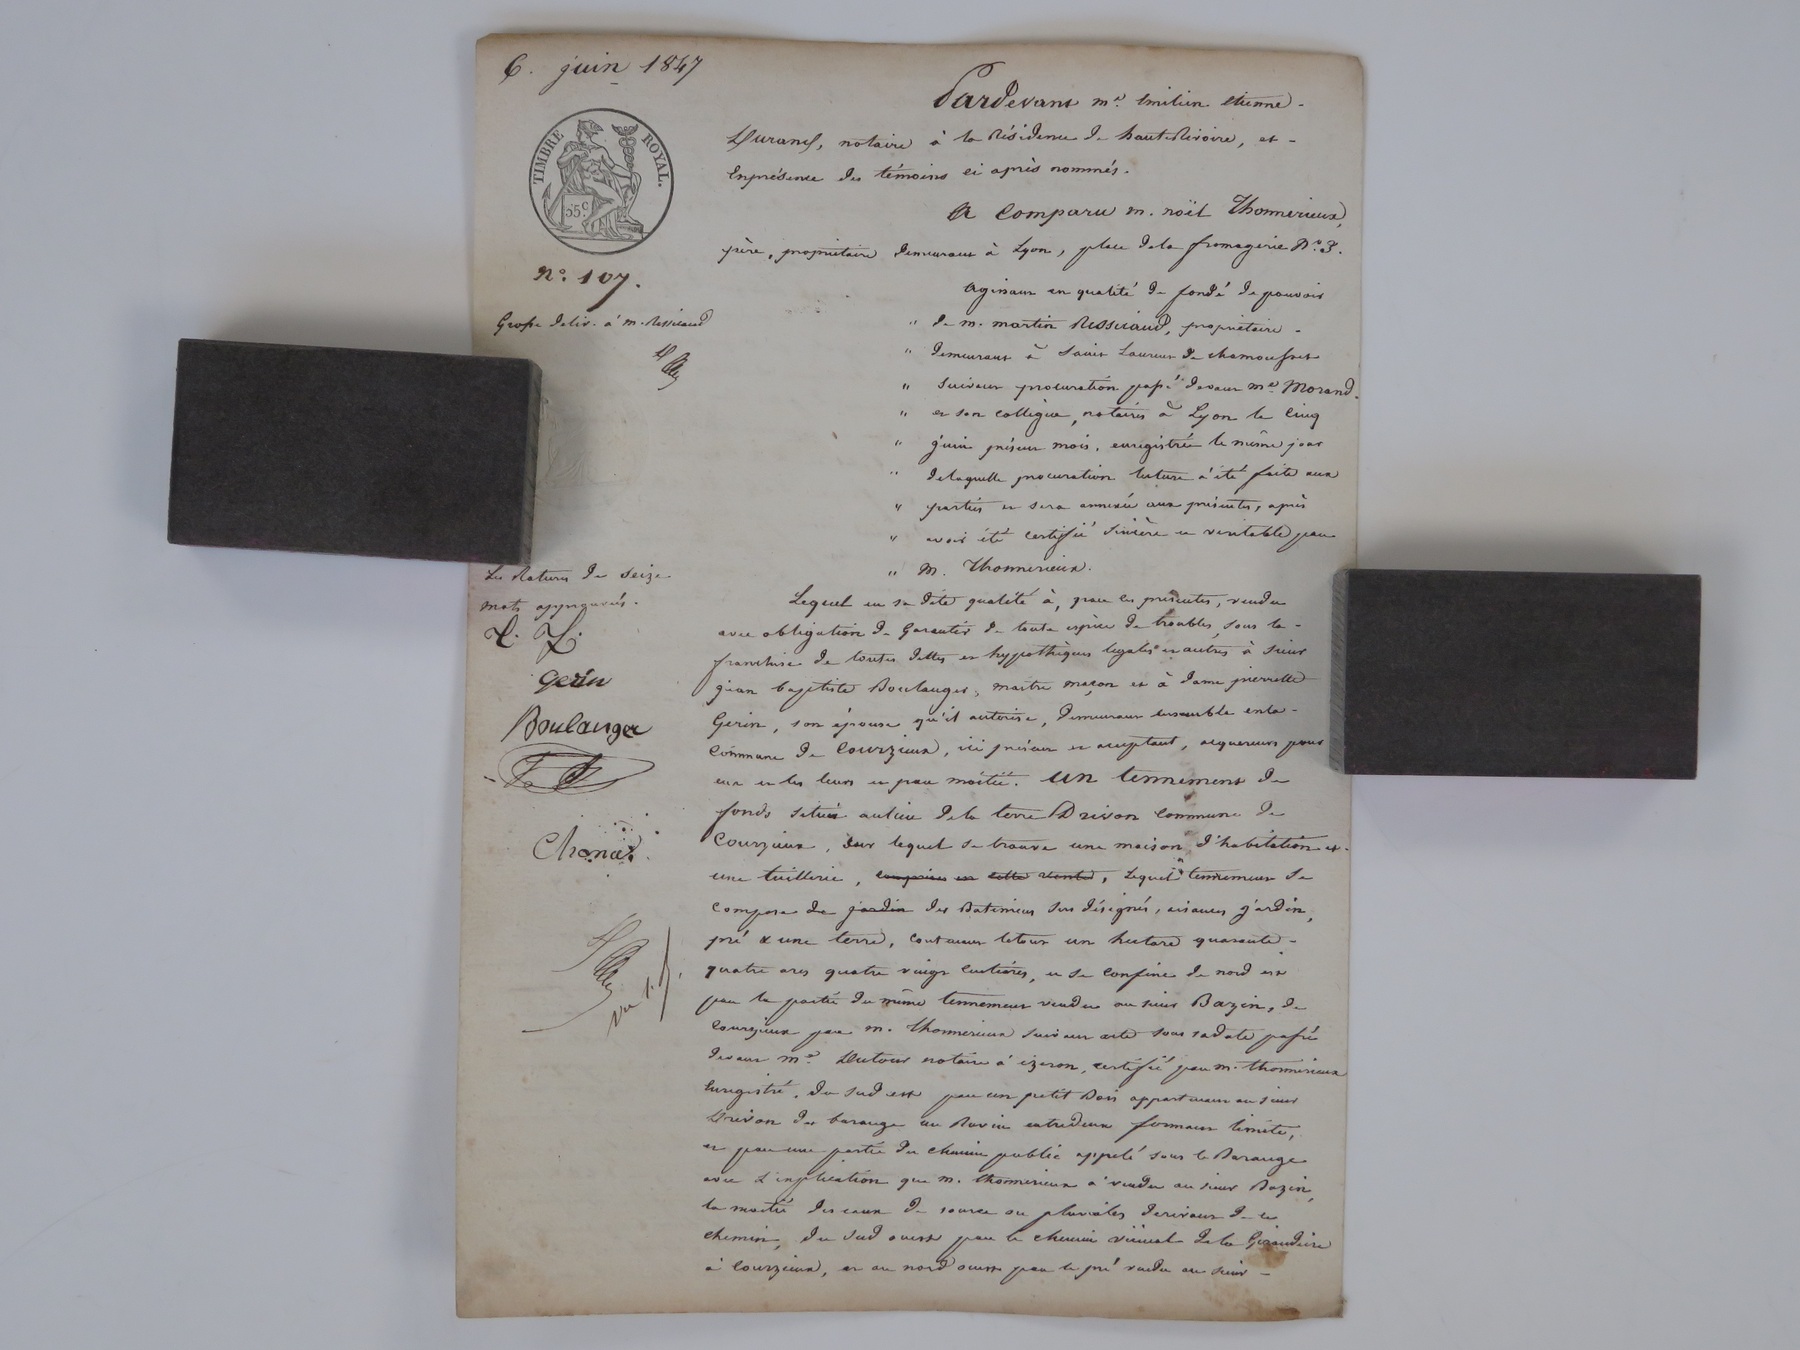 6. juin 1847
TIMBRE ROYAL.
55c
N.° 107.
Grosse déliv. à m. Ressicaud
Les Ratures de seize
mots approuvés.
Gerin
Boulanger
Pardevant me. Emilien Etienne -
Durand, notaire à la Résidence de hauteRivoire, et -
Enprésence des témoins ci après nommés.
A Comparu m. noël Thonnerieux,
père, propriétaire demeurant à Lyon, place dela fromagerie N.° 3.
Agissant en qualité de fondé de pouvoir
" de m. martin Ressicaud, propriétaire -
" demeurant à Saint Laurent de chamousset
" suivant procuration passé devant me Morand -
" et son collègue, notaires à Lyon le Cinq
" juin présent mois, enregistrée le même jour
" delaquelle procuration lecture a été faite aux
" parties et sera annexée aux présentes, après
" avoir été certifié sincère et véritable par
" M. Thonnerieux.
Lequel en sa dite qualité à, par les présentes, vendu
avec obligation de Garantir de toute espèce de troubles, sous la -
franchise de toutes dettes et hypothèques légales et autres à sieur
jean baptiste Boulanger, maitre maçon et à dame pierrette
Gerin, son épouse qu'il autorise, demeurant ensemble enla -
Commune de Courzieux, ici présent et acceptant, acquereurs pour
eux et les leurs et par moitié. un tennement de
fonds situé aulieu dela terre Drivon commune de
Courzieux, sur lequel se trouve une maison d'habitation et -
une tuillerie, comprises en cette vente, Lequel tennement se
compose de jardin des Batiments sus désignés, aisances jardin,
pré & une terre, contenant letout un hectare quarante -
quatre ares quatre vingt centiares, et se confine de nord est
par la partie du même tennement vendue au sieur Bazin, de
Courzieux par m. Thonnerieux suivant acte sous sadate passé
devant me. Dutour notaire à izeron, certifié par m. thonnerieux
Enregistré, du sud est par un petit Bois appartenant au sieur
Drivon de barange un Ravin entredeux formant limite,
et par une partie du chemin public appelé sous le Barange
avec L'explication que m. thonnerieux a vendu au sieur Bazin,
la moitié des eaux de source ou pluviales derivant de ce
chemin, du sud ouest par le chemin vicinal dela Giraudière
à Courzieux, et au nord ouest par le pré vendu au sieur -